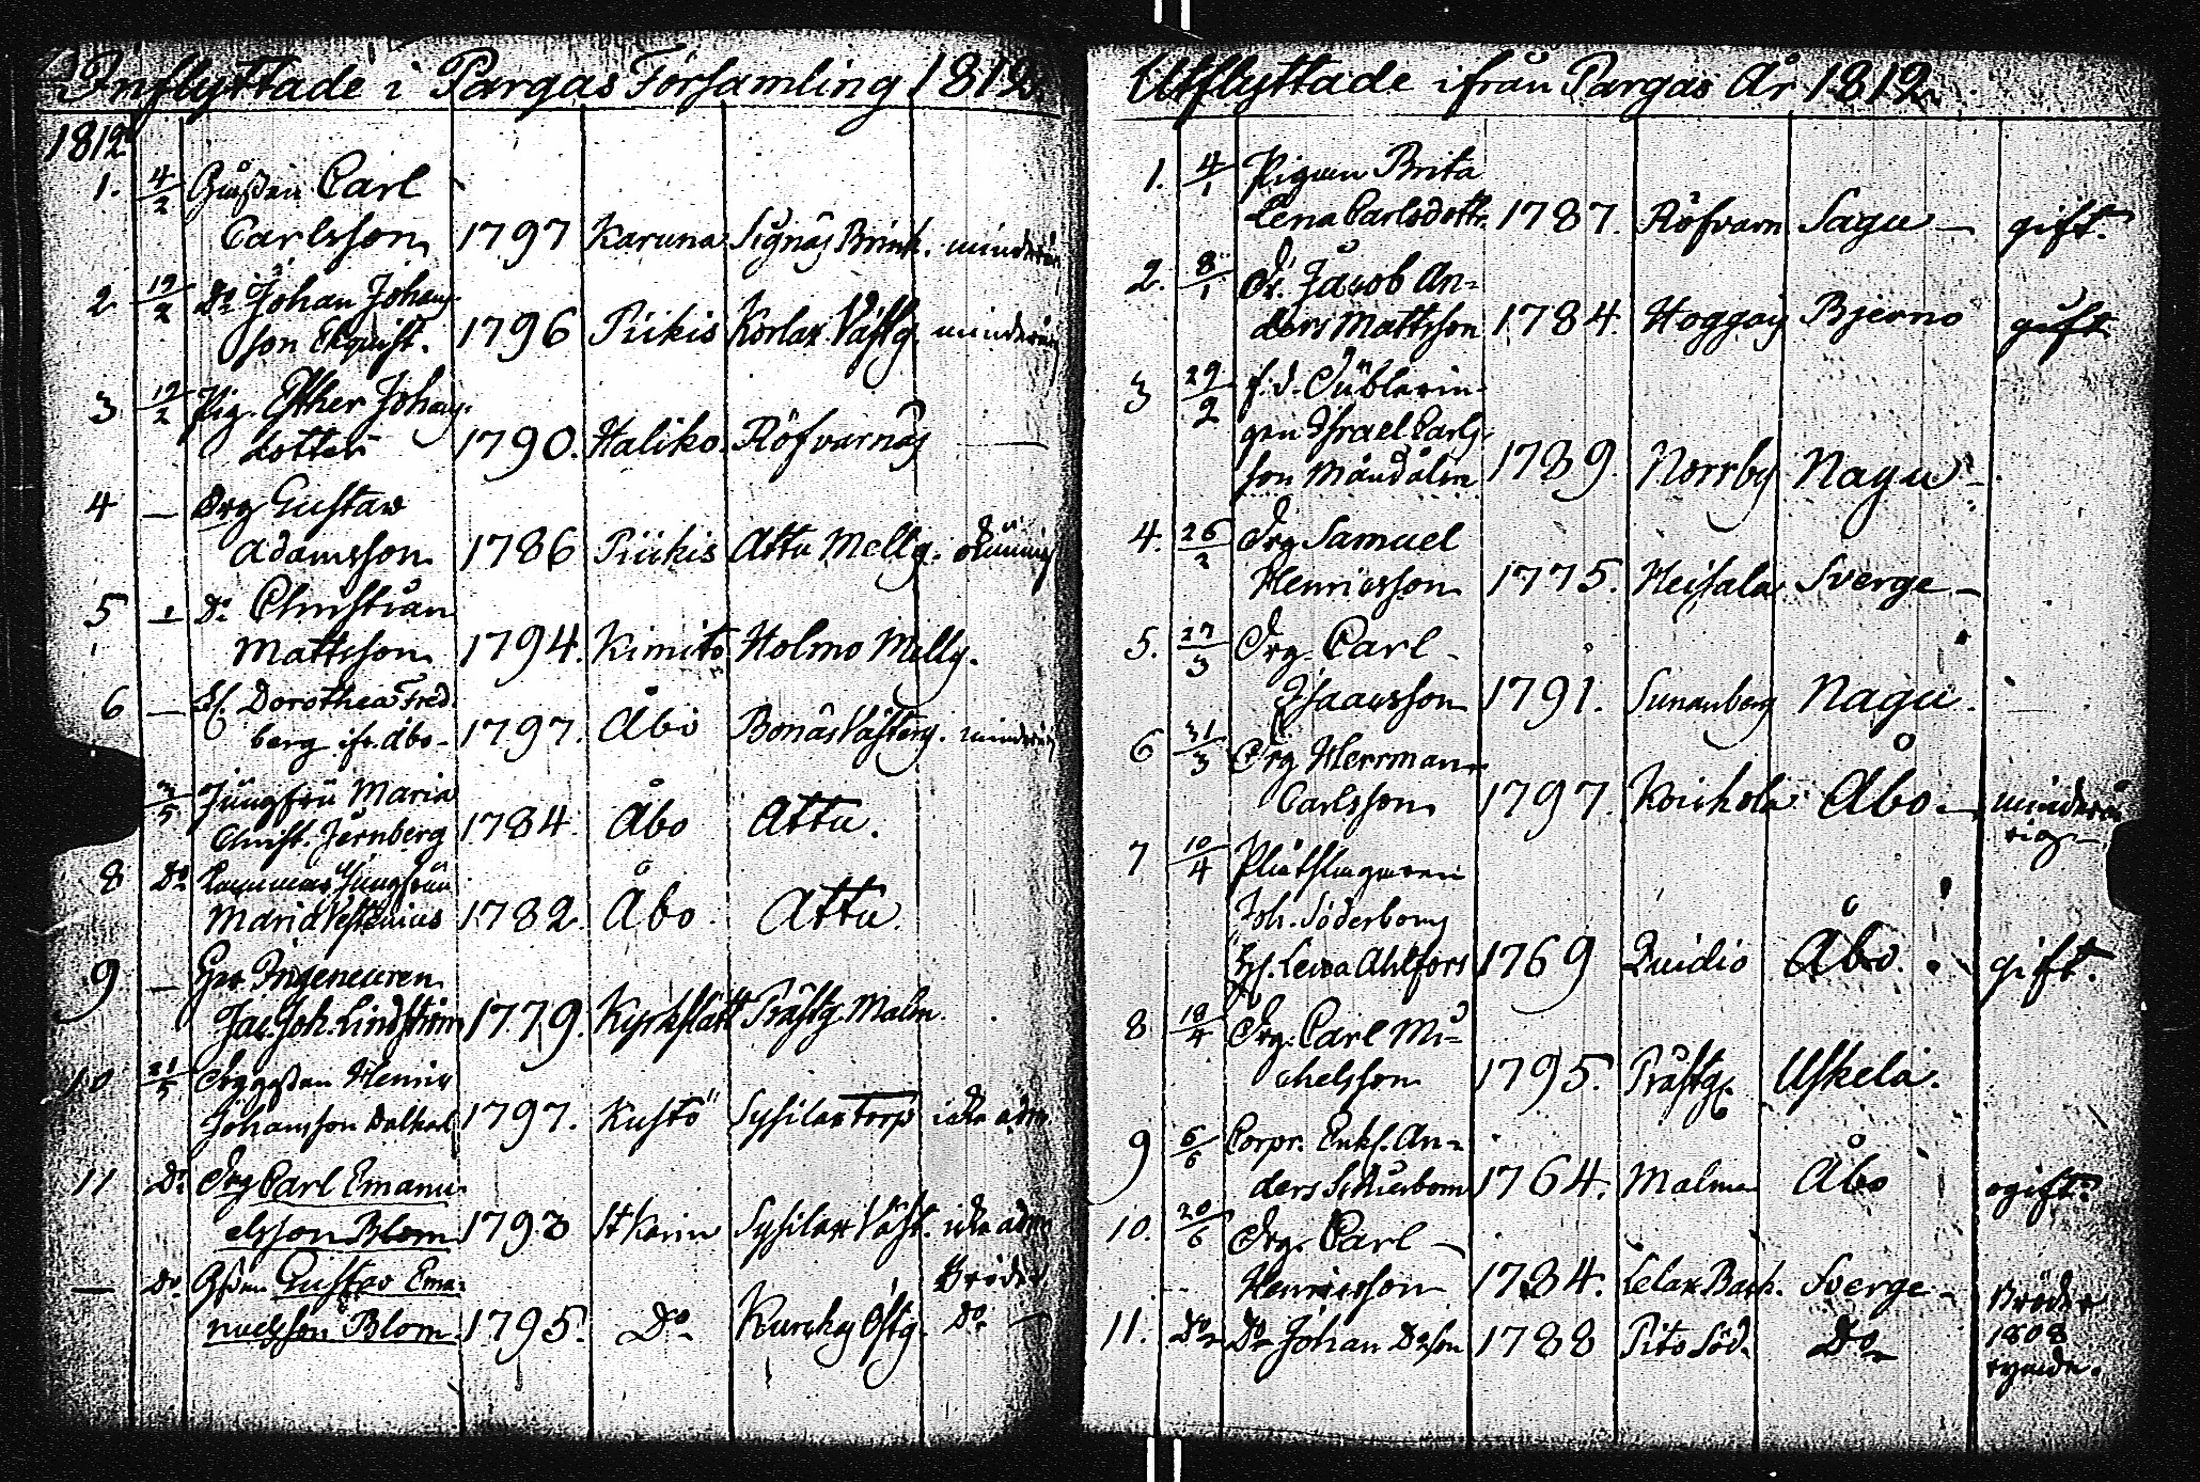 Inflyttade i Pargas Församling 1812.
1812.
1. 4/2 Gåssen Carl
Carlsson 1797 Karuna Signäs Brink. minderårig
2 12/2 Do Johan Johans-
son Ekqvist. 1796 Piikis Korlax Västg. minderårig
3 12/2 Pig. Esther Johans-
dotter 1790. Haliko. Röfvarnäs —
4 — Drg Gustav
Adamsson 1786 Piikis Attu Mellg.
5 — Do Christian
Mattsson 1794. Kimito Holmo Mellg.
6 — Dorothea Fred-
berg ifr. Åbo 1797. Åbo Bonäs Västerg. minderårig
3/5 Jungfru Maria
Christ. Jernberg 1784. Åbo Attu.
8 Do Jungfrun
Maria Vestenius 1782. Åbo. Attu.
9 — Herr Ingeneuren
Jac. Joh. Lindström 1779. Kyrkslätt Prästg. Malm.
10 21/5 Henric
Johansson Dalkarl 1797. Kustö Sysilax Torp icke adm.
11 Do Drg Carl Emanu-
elsson Blom 1793 St Karin Sysilax Väst. icke adm
— Do Gossen Gustav Ema- Bröder
nuelsson Blom. 1795. Do Kurckas Östg. Do —
Utflyttade ifrån Pargas År 1812.
1. 4/1 Pigan Brita
Lena Carlsdottr. 1787. Röfvarn Sagu — gift.
2. 8/1 Dr. Jacob An-
ders Mattsson 1784. Hoggais Bjerno gift
3 29/2 f.d.
gen Israel Carls-
son 1789. Norrby Nagu —
4. 26/2 Drg Samuel
Henricsson 1775. Heisala Sverge —
5. 27/3 Drg. Carl
Isaacsson 1791. Sunnanberg Nagu.
6 31/3 Drg Herrman
Carlsson 1797. Koirhola Åbo. — minderå-
rig —
7 10/4 Plåtslagaren
Joh. Söderbom
Hs. Lovisa Ahlfors 1769 Qvidio Åbo. gift.
8 18/4 Drg. Carl Mi-
chelsson 1795. Prästg. Uskela.
9 6/6 Corpr. Enkl. An-
ders 1764. Malm Åbo ogift.
10. 20/6 Drg. Carl
Henricsson 1784. Lelax Bach. Sverge — Bröder
11. Do Do Johan Do son 1788 Pito Söd. Do 1808
rymde.